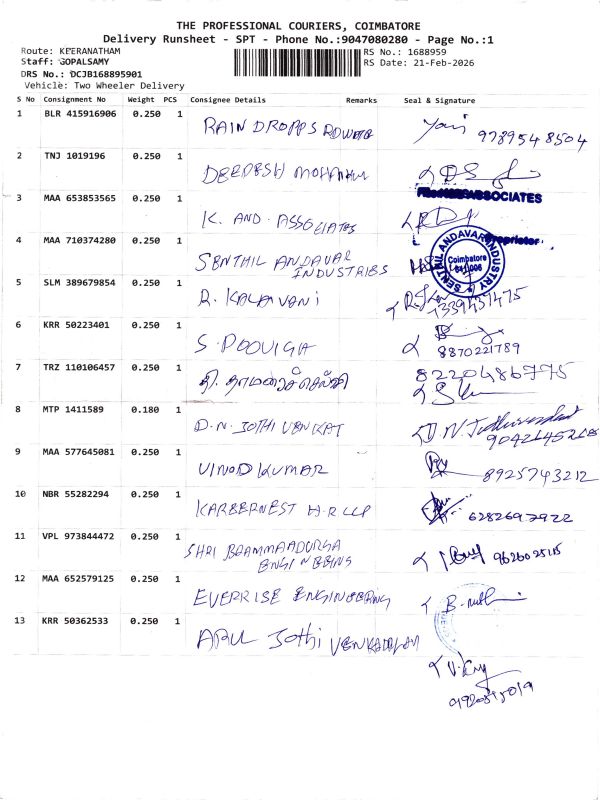 THE PROFESSIONAL COURIERS, COIMBATORE
Delivery Runsheet - SPT - Phone No.:9047080280 - Page No.:1
Route: KEERANATHAM RS No.: 1688959
Staff: GOPALSAMY RS Date: 21-Feb-2026
DRS No.: DCJB168895901
Vehicle: Two Wheeler Delivery
S No Consignment No Weight PCS Consignee Details Remarks Seal & Signature
1 BLR 415916906 0.250 1
RAIN DROPPS 9789548504
2 TNJ 1019196 0.250 1
3 MAA 653853565 0.250 1
ASSOCIATES
K. AND. ASSOCIATES
4 MAA 710374280 0.250 1
Proprietor
SENTHIL ANDAVAR
INDUSTRIES
SENTHIL ANDAVAR INDUSTRY
Coimbatore
5 SLM 389679854 0.250 1
R. KALAVANI
6 KRR 50223401 0.250 1
S. POOVIGA 8870221789
7 TRZ 110106457 0.250 1 8220486775
8 MTP 1411589 0.180 1
D.N. JOTHI VENKAT
9 MAA 577645081 0.250 1
VINOD KUMAR 8925743212
10 NBR 55282294 0.250 1
KAREERNEST H.R LLP
11 VPL 973844472 0.250 1
SHRI
12 MAA 652579125 0.250 1
EVERRISE ENGINEERING
13 KRR 50362533 0.250 1
ARUL Jothi